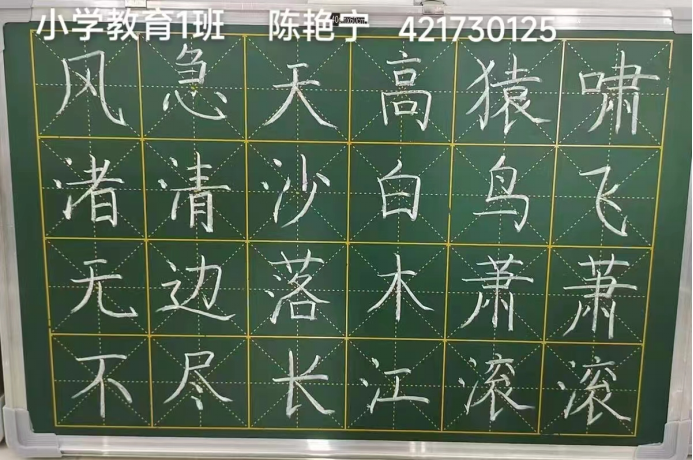 小学教育1班 陈艳宁 421730125
风急天高猿啸
渚清沙白鸟飞
无边落木萧萧
不尽长江滚滚